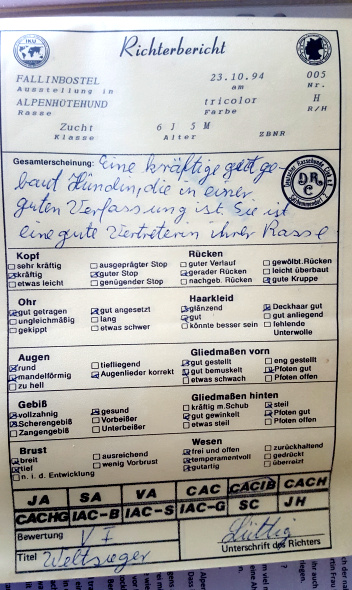 Richterbericht
FALLINBOSTEL 23.10.94 005
Ausstellung in am Nr.
ALPENHÜTEHUND tricolor H
Rasse Farbe R/H
Zucht 6 J 5 M
Klasse Alter ZBNR
Gesamterscheinung: Eine kräftige gut ge-
baut Hündin, die in einer
guten Verfassung ist. Sie ist
eine gute Vertreterin ihrer Rasse
Kopf Rücken
sehr kräftig ausgeprägter Stop guter Verlauf gewölbt.Rücken
kräftig guter Stop gerader Rücken leicht überbaut
etwas leicht genügender Stop nachgeb. Rücken gute Kruppe
Ohr Haarkleid
gut getragen gut angesetzt glänzend Deckhaar gut
ungleichmäßig lang gut gut anliegend
gekippt etwas schwer könnte besser sein fehlende
Unterwolle
Augen Gliedmaßen vorn
rund tiefliegend gut gestellt eng gestellt
mandelförmig Augenlieder korrekt gut bemuskelt Pfoten gut
zu hell etwas schwach Pfoten offen
Gebiß Gliedmaßen hinten
vollzahnig gesund kräftig m.Schub steil
Scherengebiß Vorbeißer gut gewinkelt Pfoten gut
Zangengebiß Unterbeißer etwas steil Pfoten offen
Brust Wesen
breit ausreichend frei und offen zurückhaltend
tief wenig Vorbrust temperamentvoll gedrückt
n. i. d. Entwicklung gutartig überreizt
JA SA VA CAC CACIB CACH
CACHG IAC-B IAC-S IAC-G SC JH
Bewertung V I
Titel Weltsieger Unterschrift des Richters